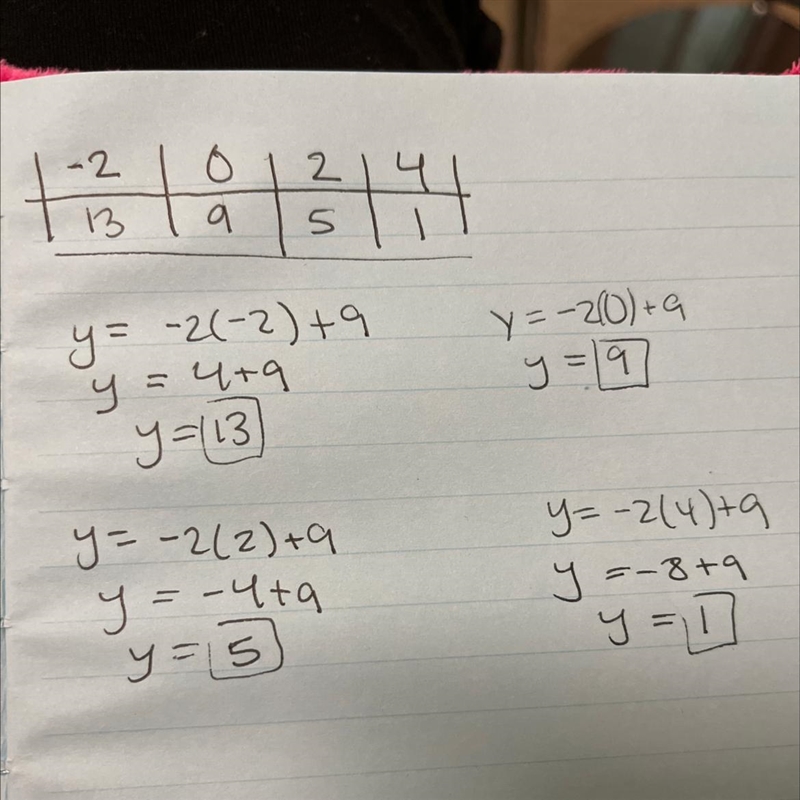 -2 0 2 4
13 9 5 1
y = -2(-2)+9
y = 4+9
y = 13
y = -2(0)+9
y = 9
y = -2(2)+9
y = -4+9
y = 5
y = -2(4)+9
y = -8+9
y = 1